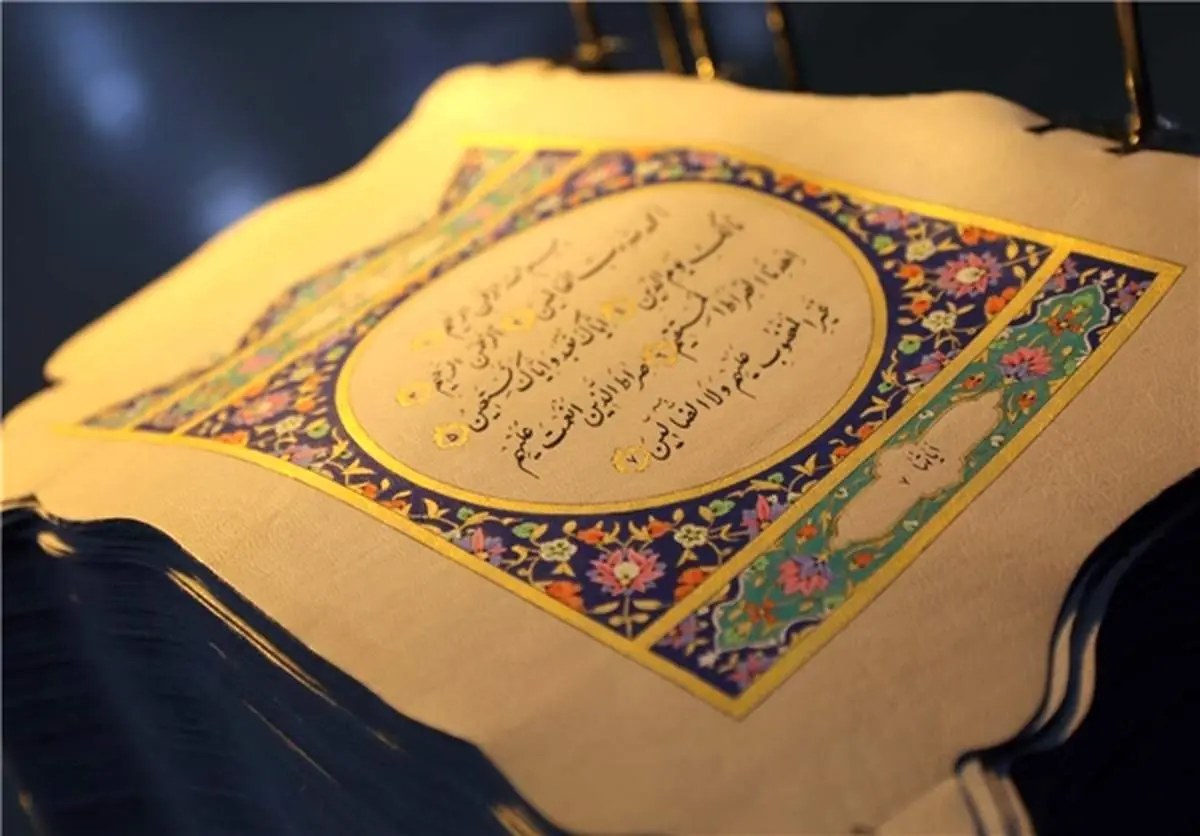 بسم الله الرحمن الرحيم
الحمد لله رب العالمين الرحمن الرحيم
مالك يوم الدين ۴ اياك نعبد و اياك نستعين ۵
اهدنا الصراط المستقيم ۶ صراط الذين انعمت عليهم
غير المغضوب عليهم ولا الضآلين ۷
آیاتها ۷